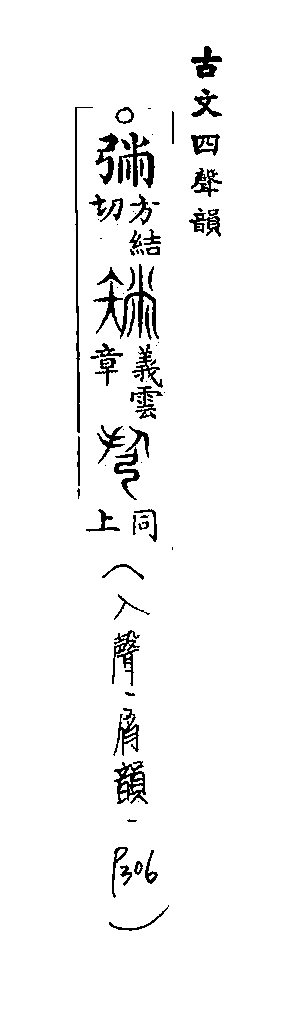 古文四聲韻
○ 方結切 義雲章 同上（入聲-屑韻-P306）